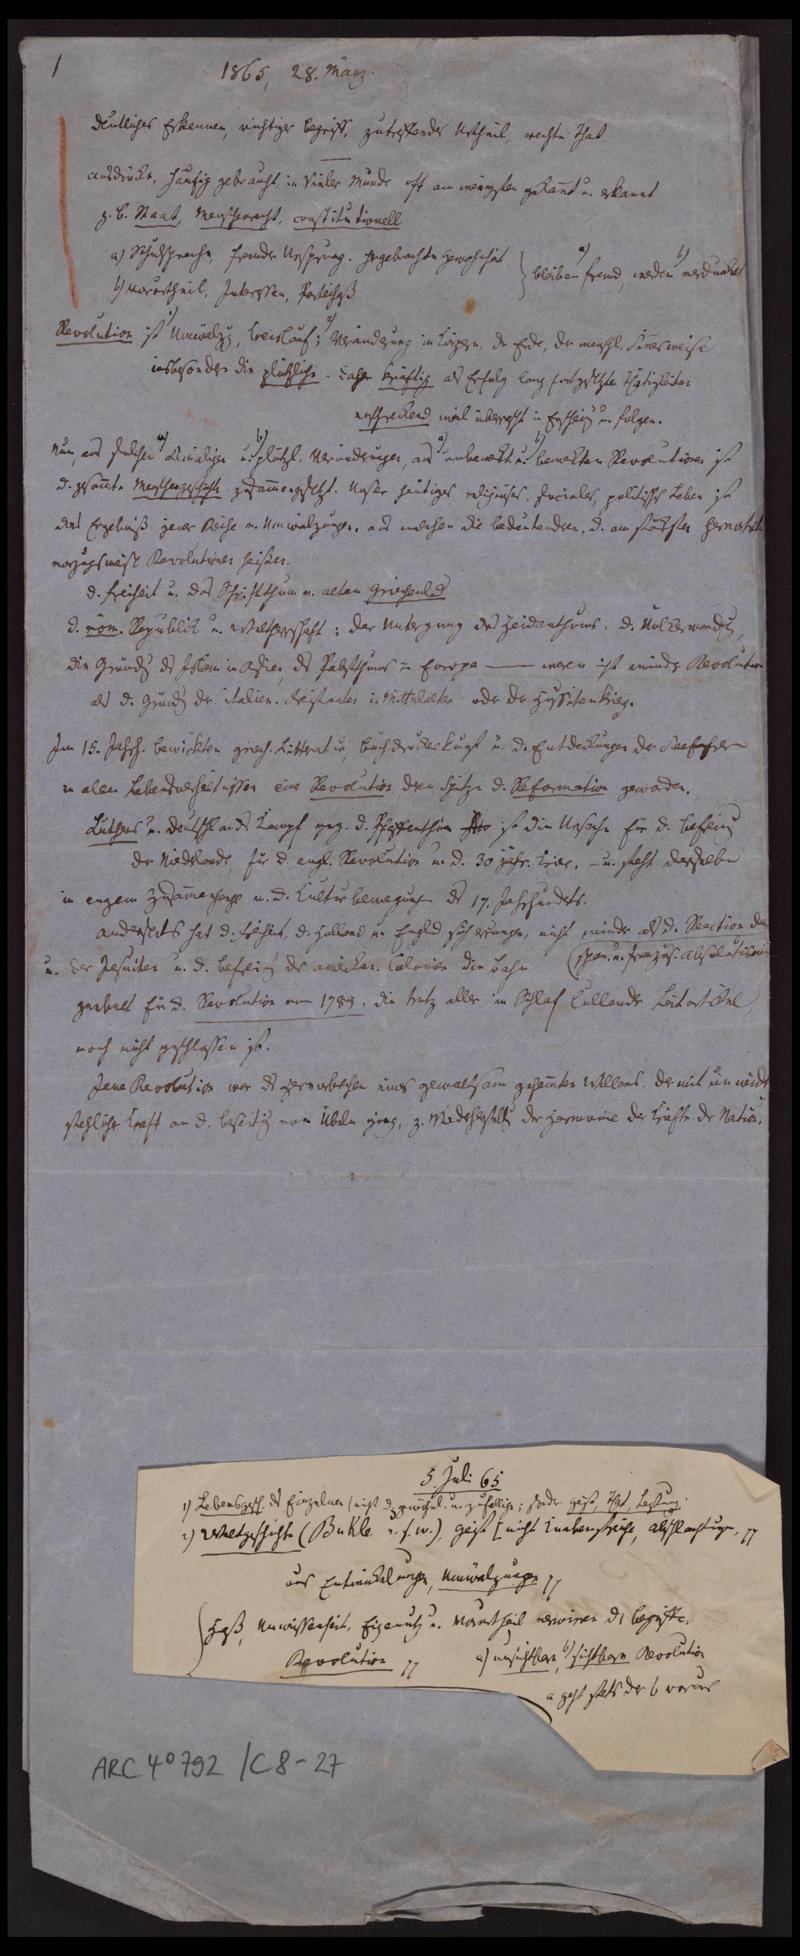 1
1865, 28. März.
Deutliches Erkennen, richtiger Begriff, zutreffendes Urtheil, rechte That
Ausdrücke, häufig gebraucht, in Vieler Munde oft am wenigsten gekannt u. erkannt
z. B. Staat, Menschenrecht, constitutionell
a) Schulsprache, fremder Ursprung. hergebrachte Gewohnheit
b) Vorurtheil, Interessen, Parteihaß
a) bleiben fremd, b) werden verdunkelt
Revolution ist 1) Umwälzg, Kreislauf; 2) Veränderung in Körpern, der Erde, der menschl. Sinnesweise
insbesondere die plötzliche. Daher kräftig als Erfolg lang fortgesetzter Thätigkeiten
erschreckend weil überrascht in Erscheing u. Folgen.
Nun, aus solchen a) allmäligen u. b) plötzl. Veränderungen, aus a) unbewußt. u. b) bewußten Revolutionen ist
d. gesammte Menschengeschichte zusammengesetzt. Unser heutiges religiöses, sociales, politisches Leben ist
das Ergebniß jener Reihe v. Umwälzungen, aus welchen die bedeutendsten, d. am stärksten
vorzugsweise Revolutionen heißen.
d. Freiheit u. das Schriftthum v. alten Griechenld
d. röm. Republik u. Weltherrschaft; der Untergang des Heidenthums, d. Völkerwandg,
die Gründg des Islam in Asien, des Pabstthums in Europa — waren nicht minder Revolution
als d. Gründg der italien. Freistaaten im Mittelalter oder der Hussitenkrieg.
Im 15. Jahrh. bewirkten griech. Litteratur, Buchdruckerkunst u. d. Entdeckungen der Seefahrer
in allen Lebensverhältnissen eine Revolution deren Spitze d. Reformation geworden.
Luthers u. Deutschlands Kampf geg. d. Pfaffenthum ist die Ursache für d. Befreiung
der Niederlande, für d. engl. Revolution u. d. 30jähr. Krieg, – u. steht derselbe
in engem Zusammenhange m. d. Culturbewegung des 17. Jahrhunderts.
Anderseits hat d. Freiheit, d. Holland u. Engld sich errungen, nicht minder als d. Reaction des
(span. u. französ. Absolutismus
u. der Jesuiten u. d. Befreiung der amerikan. Colonien die Bahn
geebnet für d. Revolution von 1789, die trotz aller in Schlaf lullender Leitartikel,
noch nicht geschlossen ist.
Jene Revolution war das Hervorbrechen eines gewaltsam gehemmten Willens, der mit unwider
stehlicher Kraft an d. Beseitig. von Übeln ging, z. Wiederherstellg der Harmonie der Kräfte der Nation.
5 Juli 65
1) Lebensgesch. des Einzelnen (nicht d. gewöhnl. u. zufälligen; sondern Geist, That, Leistung.
2) Weltgeschichte (Buckle u. s. w.), Geist [nicht Knabenstreiche, Abschlachtungen,
aus Entwickelungen, Umwälzungen
Haß, Unwissenheit, Eigennutz u. Vorurtheil verwirren d. Begriffe.
Revolution
a) unsichtbare, b) sichtbare Revolution
a geht stets der b voraus
ARC 4° 792 / C 8 - 27